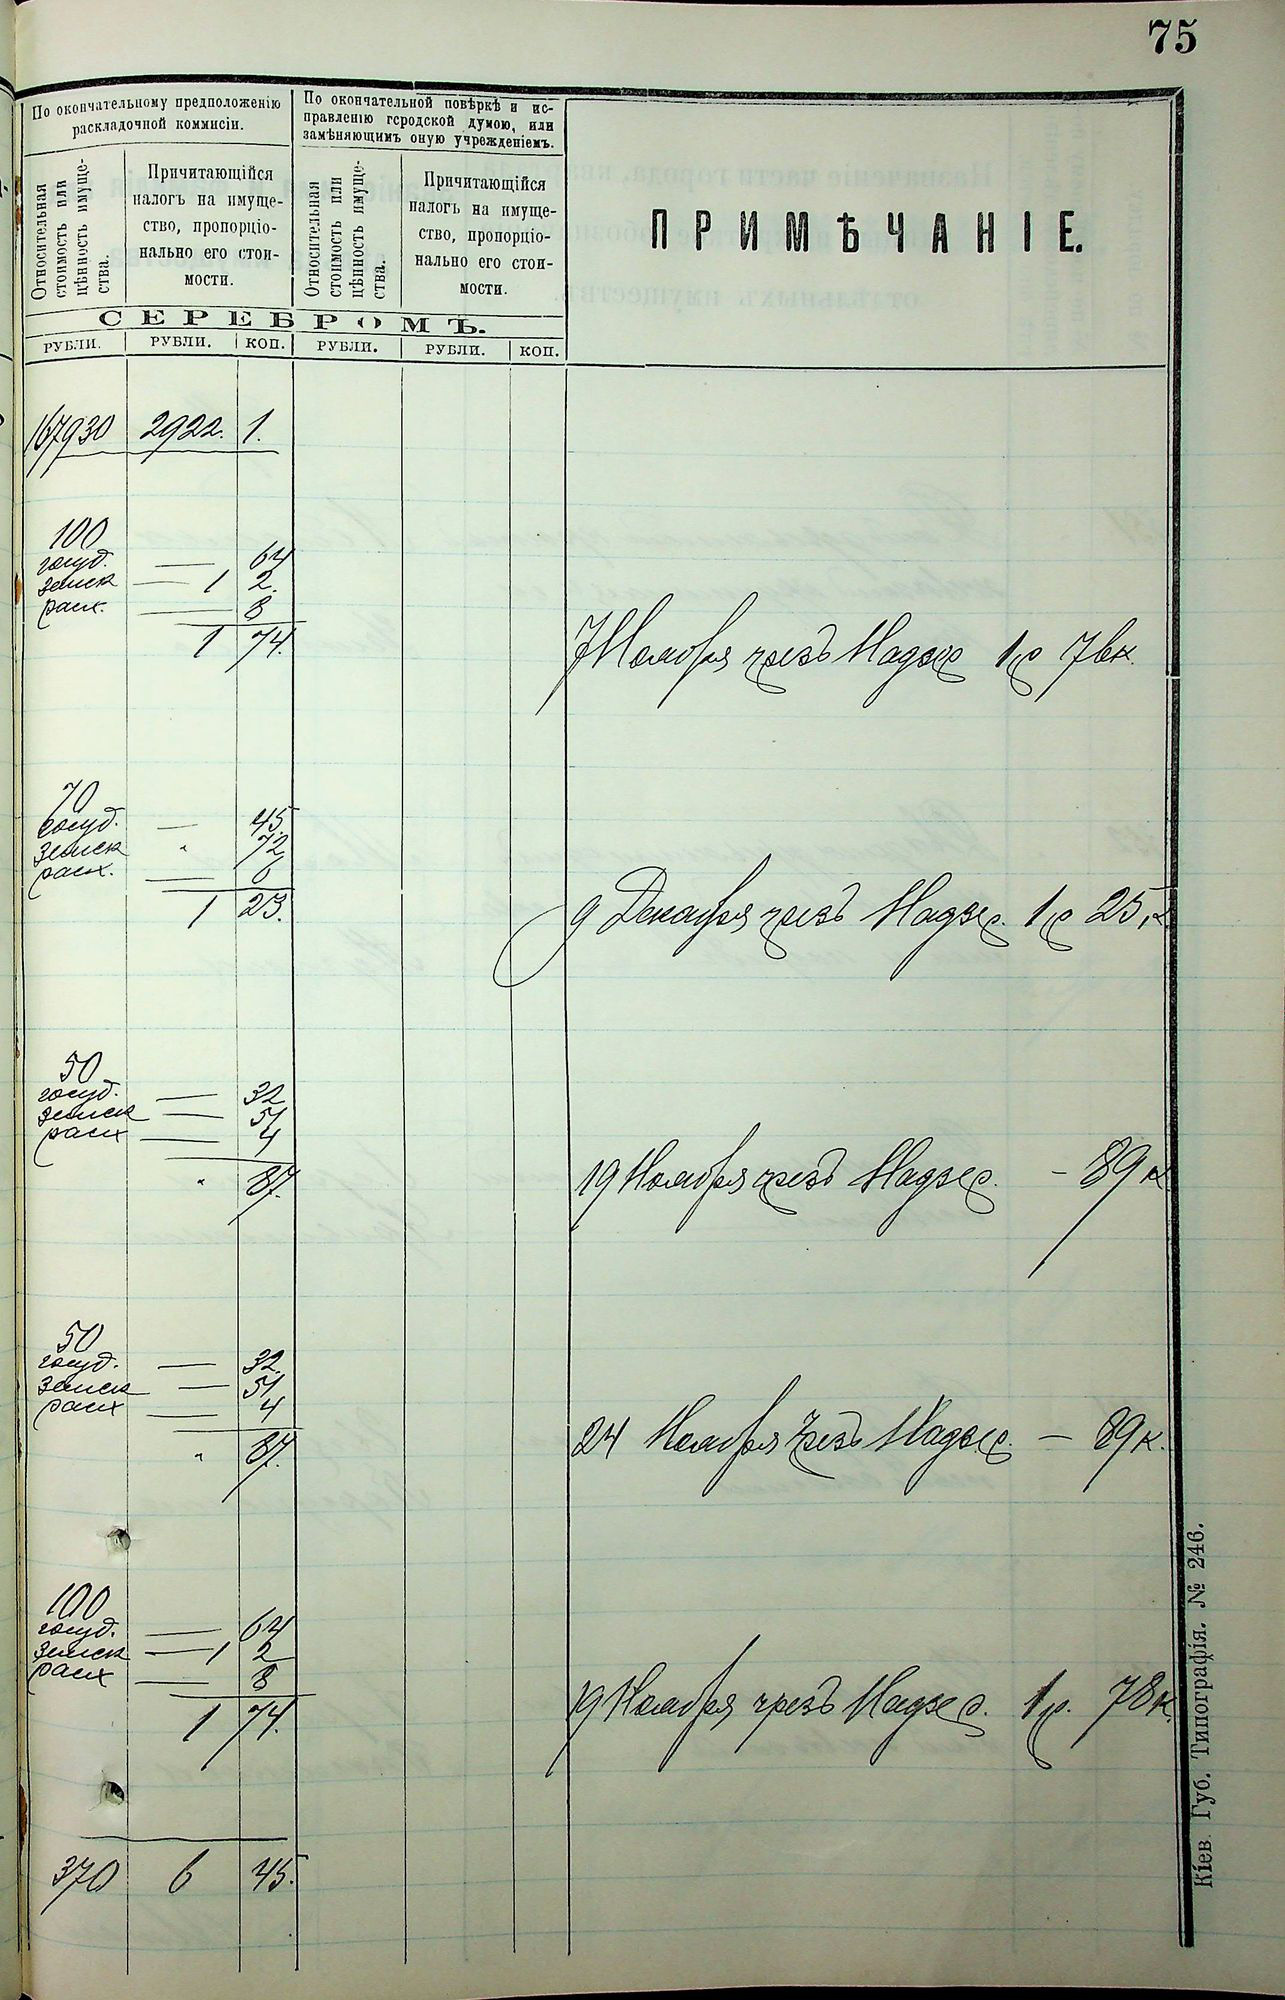 75
По окончательному предположенію
раскладочной коммисіи.
По окончательной повѣркѣ и ис-
правленію городской думою, или
замѣняющимъ оную учрежденіемъ.
ПРИМѢЧАНІЕ.
Относительная
стоимость или
цѣнность имуще-
ства.
Причитающійся
налогъ на имуще-
ство, пропорціо-
нально его стои-
мости.
Относительная
стоимость или
цѣнность имуще-
ства.
Причитающійся
налогъ на имуще-
ство, пропорціо-
нально его стои-
мости.
СЕРЕБРОМЪ.
РУБЛИ. РУБЛИ. КОП. РУБЛИ. РУБЛИ. КОП.
167930 2922. 1.
100
госуд. — 64
земск — 1 2.
расх. — 8
1 74.
7 Ноября чрезъ Надзир 1 р 76 к.
70
госуд. — 45.
земск " 72
расх. — 6
1 23.
9 Декабря чрезъ Надзир. 1 р 25 к
50
госуд. — 32
земск — 51
расх — 4
" 87.
19 Ноября чрезъ Надзир. — 89 к
50
госуд. — 32.
земск — 51
расх — 4
" 87.
24 Ноября чрезъ Надзир. — 89 к.
100
госуд. — 64
земск — 1 2
расх — 8
1 74.
19 Ноября чрезъ Надзир. 1 р. 78 к.
370 6 45.
Кіев. Губ. Типографія. № 246.